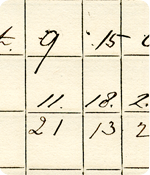 t. 9 15
11. 18. 2.
21 13 2